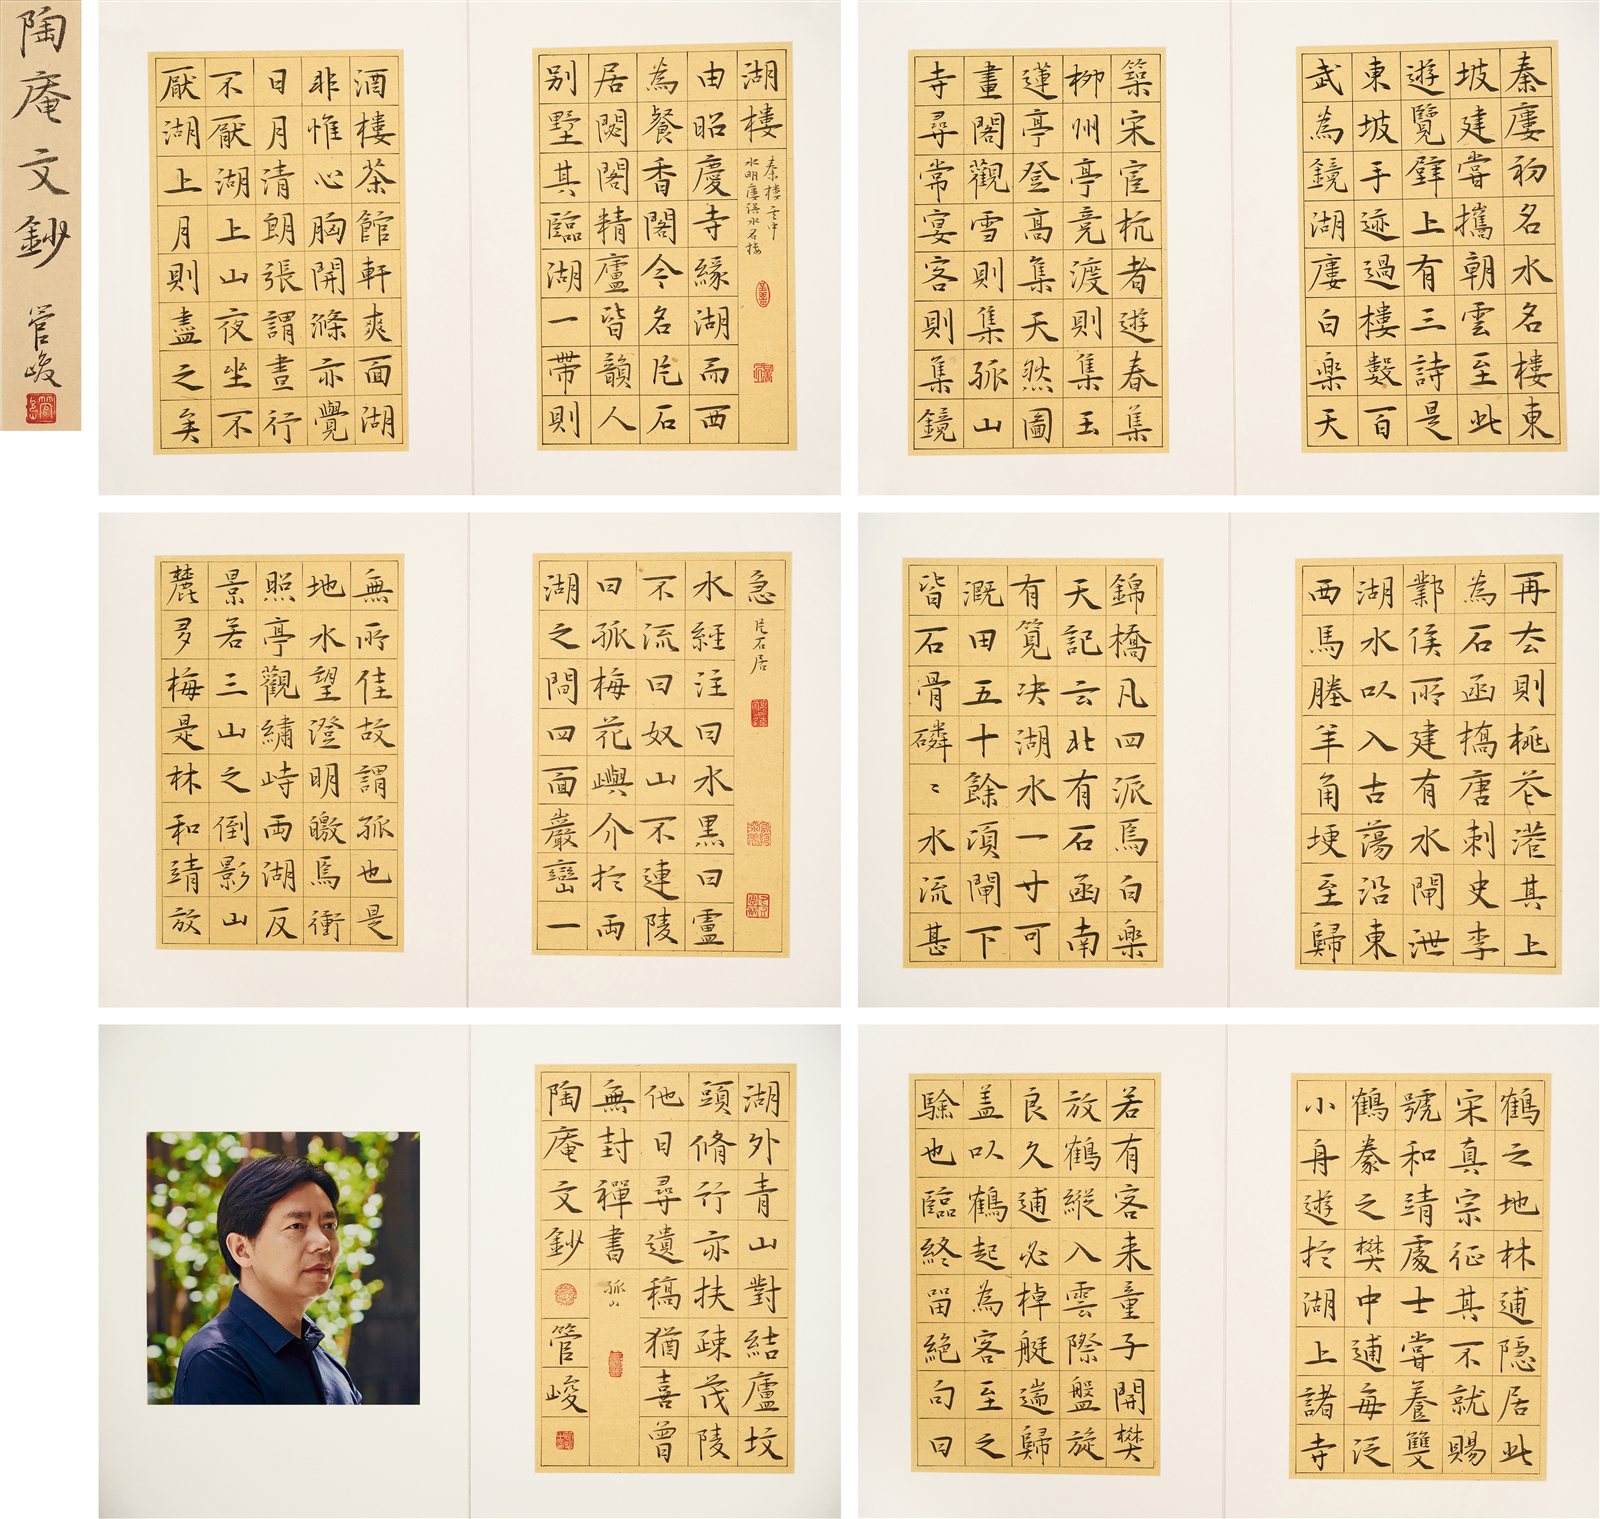 陶庵文鈔 管峻
秦廔初名水名樓東
坡建嘗攜朝雲至此
遊覽壁上有三詩是
東坡手迹過樓數百
武為鏡湖廔白樂天
築宋宦杭者遊春集
柳州亭競渡則集玉
蓮亭登高集天然圖
畫閣觀雪則集孤山
寺尋常宴客則集鏡
湖樓
秦樓文中
水明廔誤水名樓
由昭慶寺緣湖而西
為餐香閣今名片石
居閟閣精廬皆韻人
别墅其臨湖一帶則
酒樓茶館軒爽面湖
非惟心胸開滌亦覺
日月清朗張謂晝行
不厭湖上山夜坐不
厭湖上月則盡之矣
再去則桃花港其上
為石函橋唐刺史李
鄴侯所建有水閘泄
湖水以入古蕩沿東
西馬塍羊角埂至歸
錦橋凡四派焉白樂
天記云北有石函南
有筧决湖水一寸可
溉田五十餘頃閘下
皆石骨磷〻水流甚
急 片石居
水經注曰水黑曰盧
不流曰奴山不連陵
曰孤梅花嶼介於兩
湖之間四面巖巒一
無所佳故謂孤也是
地水望澄明皦焉衝
照亭觀繡峙兩湖反
景若三山之倒影山
麓多梅是林和靖放
鶴之地林逋隱居此
宋真宗征其不就賜
號和靖處士嘗養雙
鶴豢之樊中逋每泛
小舟遊於湖上諸寺
若有客来童子開樊
放鶴縱入雲際盤旋
良久逋必棹艇遄歸
盖以鶴起為客至之
驗也臨終留絶句曰
湖外青山對結廬墳
頭脩竹亦扶疎茂陵
他日尋遺稿猶喜曾
無封禪書 孤山
陶庵文鈔 管峻